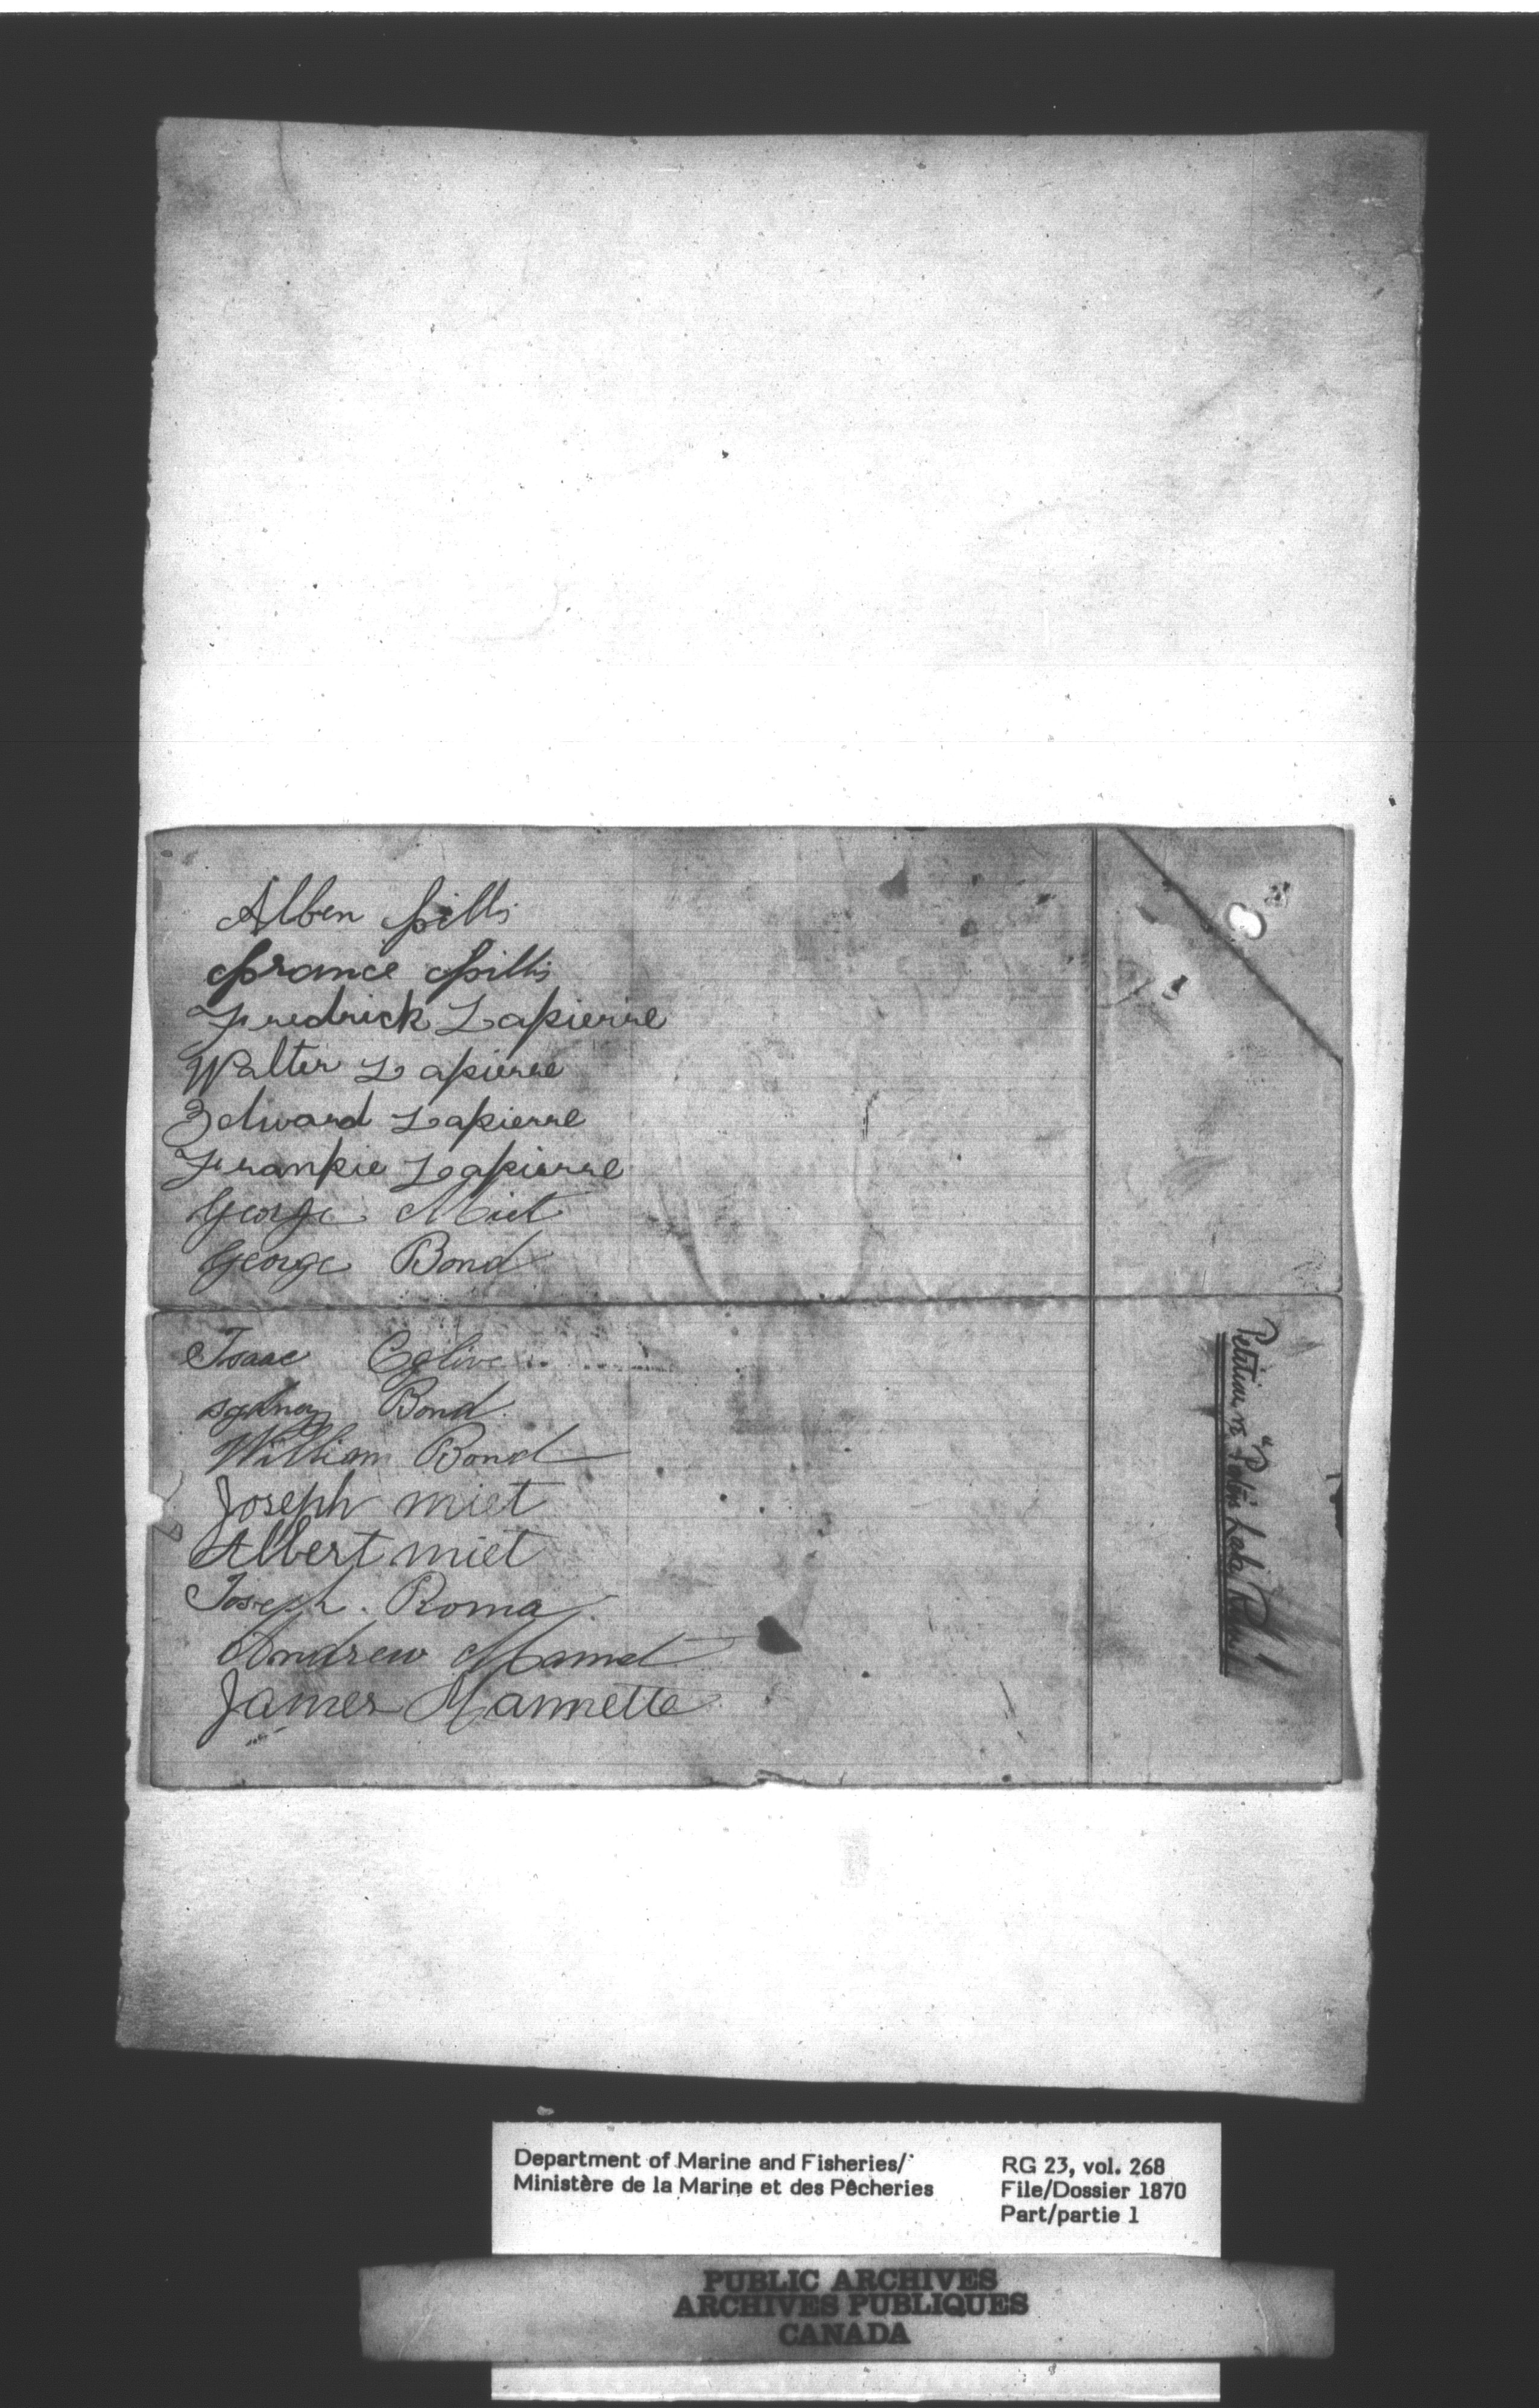 Alben pills
france pillis
Fredrick Lapierre
Walter Lapierre
Edward Lapierre
Frankie Lapierre
George Miet
George Bond
Isaac
Sydney Bond.
William Bond
Joseph miet
Albert miet
Joseph. Roma
Andrew
James Mannette
Petition re "
Department of Marine and Fisheries/
Ministère de la Marine et des Pêcheries
RG 23, vol. 268
File/Dossier 1870
Part/partie 1
PUBLIC ARCHIVES
ARCHIVES PUBLIQUES
CANADA